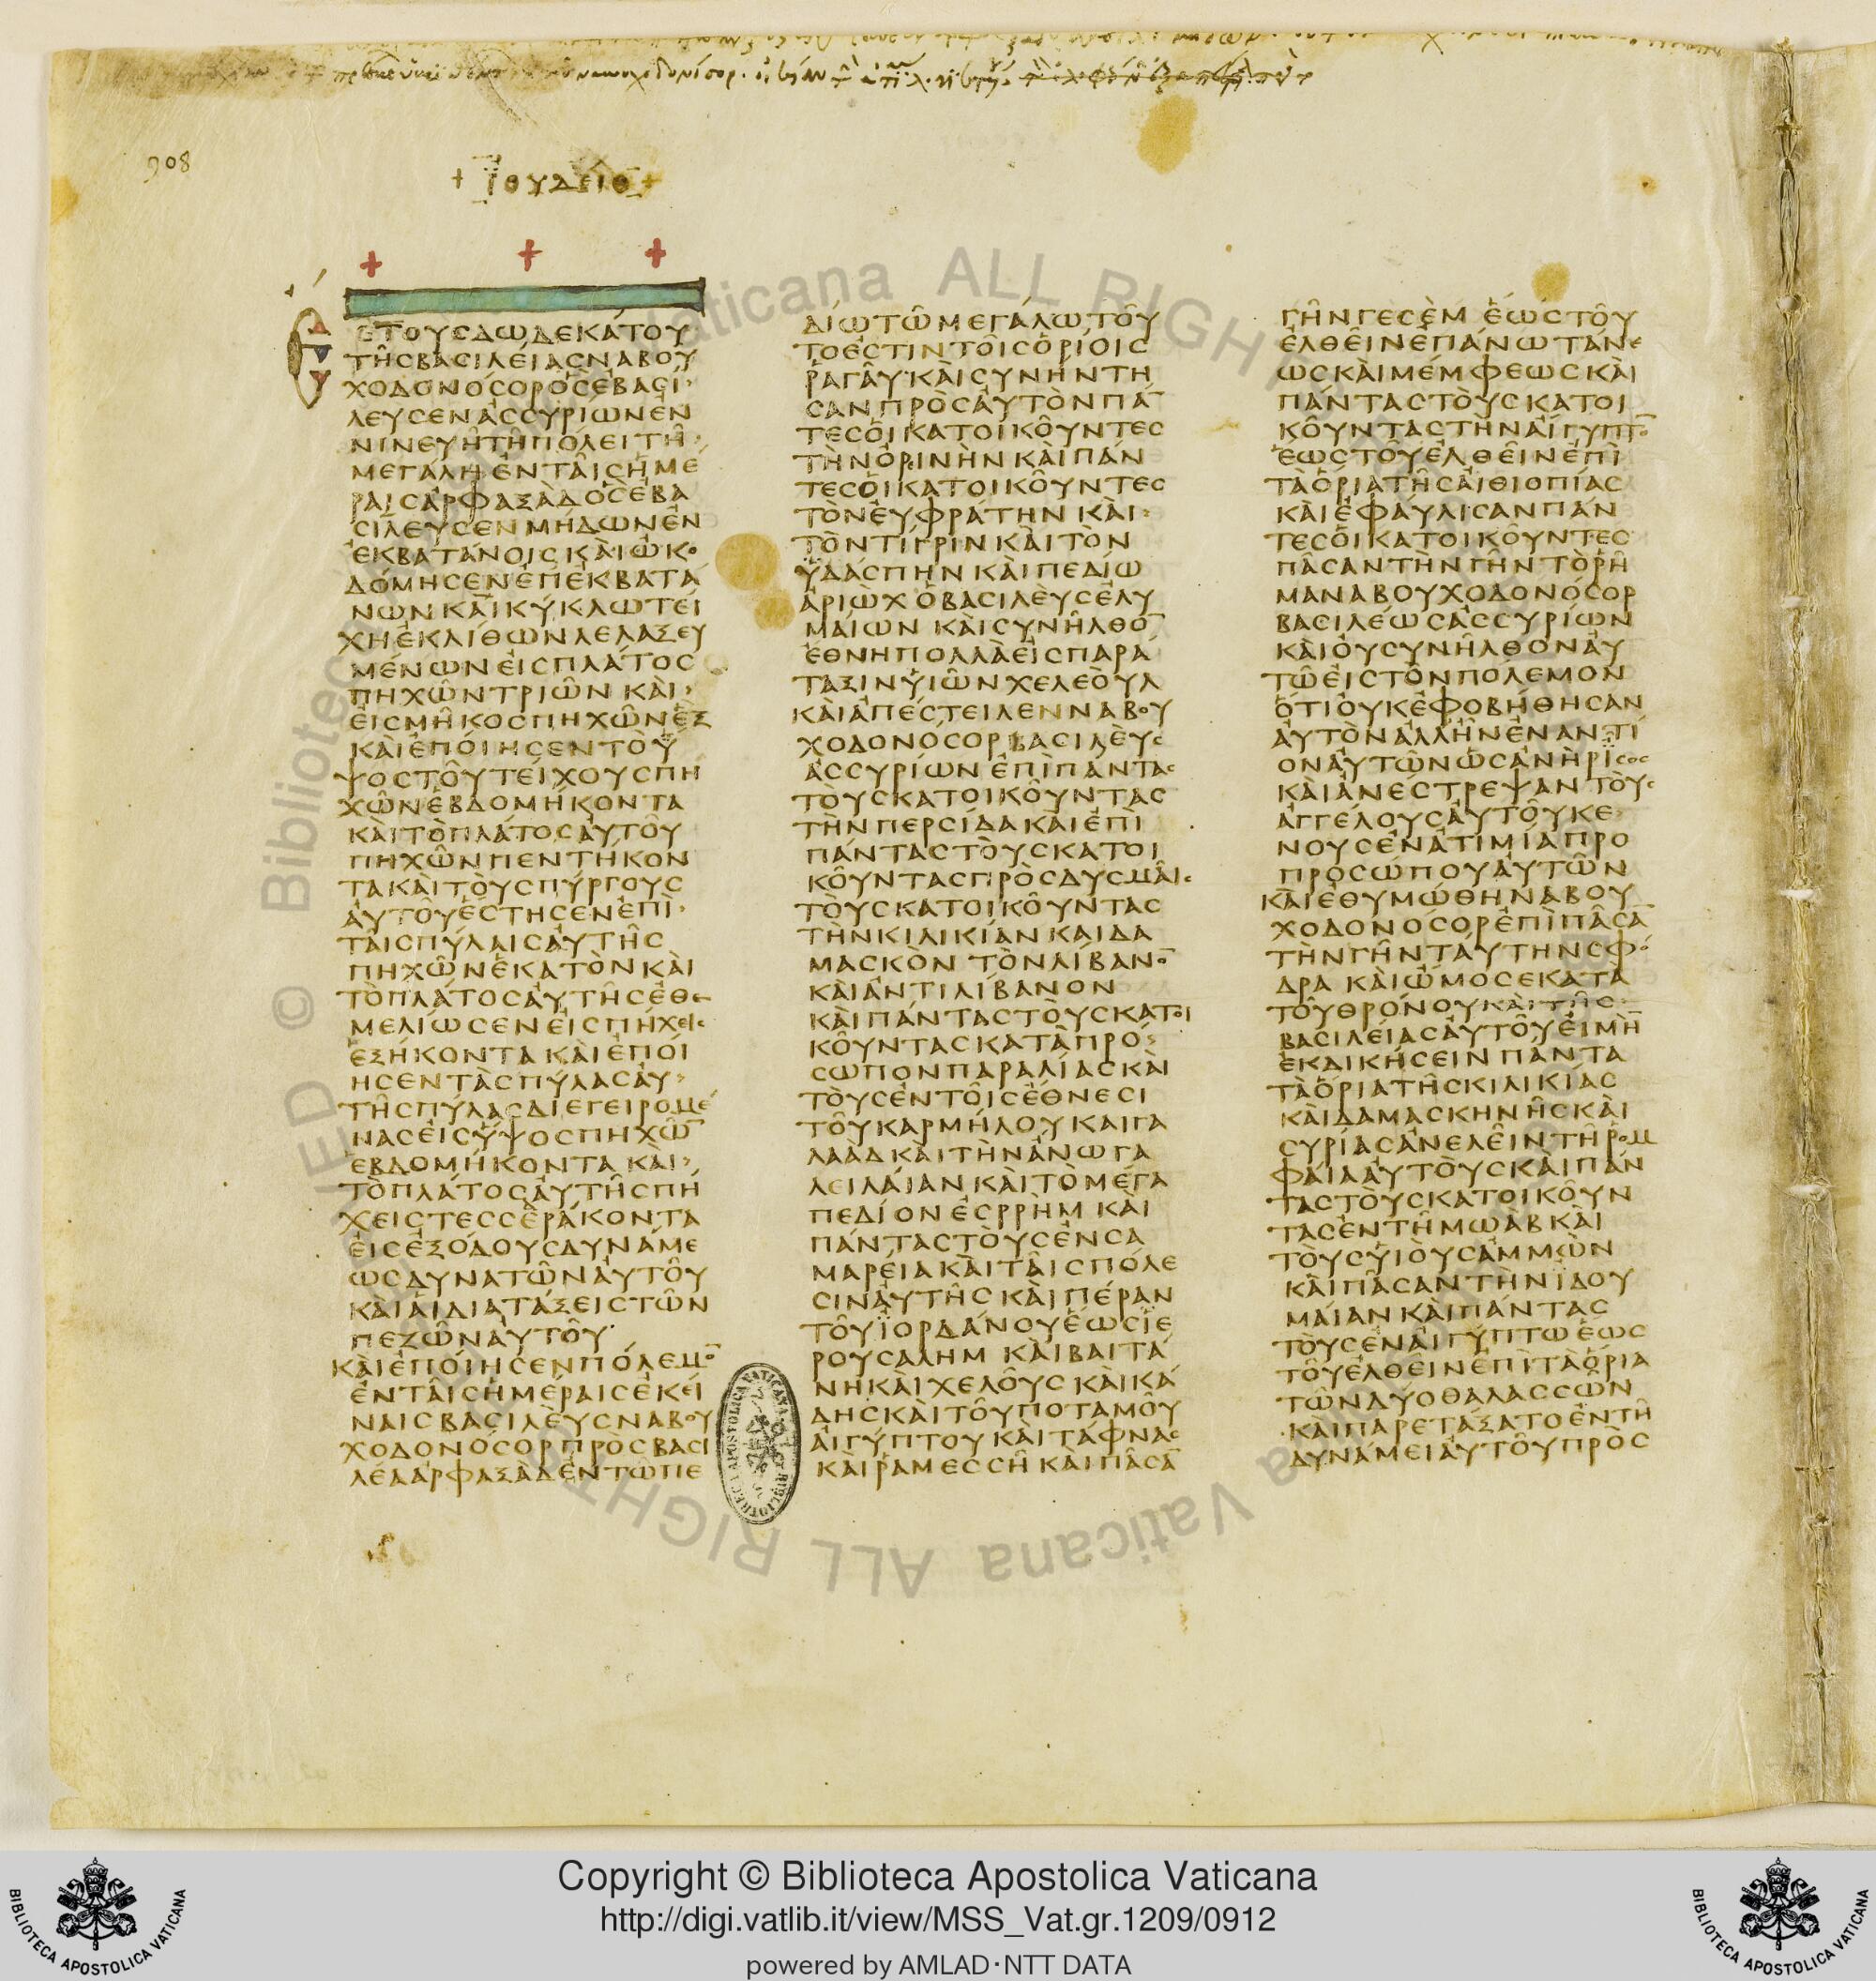 908
+ ΪΟΥΔΕΙΘ +
ΕΤΟΥΣ ΔΩΔΕΚΑΤΟΥ
ΤΗϹΒΑϹΙΛΕΙΑϹΝΑΒΟΥ
ΧΟΔΟΝΟϹΟΡΟϹΕΒΑϹΙ
ΛΕΥϹΕΝΑϹϹΥΡΙΩΝΕΝ
ΝΙΝΕΥΗΤΗΠΟΛΕΙΤΗ
ΜΕΓΑΛΗΕΝΤΑΙϹΗΜΕ
ΡΑΙϹΑΡΦΑΞΑΔΟϹΕΒΑ
ϹΙΛΕΥϹΕΝΜΗΔΩΝΕΝ
ΕΚΒΑΤΑΝΟΙϹΚΑΙΩΚΟ
ΔΟΜΗϹΕΝΕΠΕΚΒΑΤΑ
ΝΩΝΚΑΙΚΥΚΛΩΤΕΙ
ΧΗΕΚΛΙΘΩΝΛΕΛΑΞΕΥ
ΜΕΝΩΝΕΙϹΠΛΑΤΟϹ
ΠΗΧΩΝΤΡΙΩΝΚΑΙ
ΕΙϹΜΗΚΟϹΠΗΧΩΝΕΞ
ΚΑΙΕΠΟΙΗϹΕΝΤΟΥ
ΨΟϹΤΟΥΤΕΙΧΟΥϹΠΗ
ΧΩΝΕΒΔΟΜΗΚΟΝΤΑ
ΚΑΙΤΟΠΛΑΤΟϹΑΥΤΟΥ
ΠΗΧΩΝΠΕΝΤΗΚΟΝ
ΤΑΚΑΙΤΟΥϹΠΥΡΓΟΥϹ
ΑΥΤΟΥΕϹΤΗϹΕΝΕΠΙ
ΤΑΙϹΠΥΛΑΙϹΑΥΤΗϹ
ΠΗΧΩΝΕΚΑΤΟΝΚΑΙ
ΤΟΠΛΑΤΟϹΑΥΤΗϹΕΘΕ
ΜΕΛΙΩϹΕΝΕΙϹΠΗΧΕΙϹ
ΕΞΗΚΟΝΤΑΚΑΙΕΠΟΙ
ΗϹΕΝΤΑϹΠΥΛΑϹΑΥ
ΤΗϹΠΥΛΑϹΔΙΕΓΕΙΡΟΜΕ
ΝΑϹΕΙϹΥΨΟϹΠΗΧΩ̅
ΕΒΔΟΜΗΚΟΝΤΑΚΑΙ
ΤΟΠΛΑΤΟϹΑΥΤΗϹΠΗ
ΧΕΙϹΤΕϹϹΕΡΑΚΟΝΤΑ
ΕΙϹΕΞΟΔΟΥϹΔΥΝΑΜΕ
ΩϹΔΥΝΑΤΩΝΑΥΤΟΥ
ΚΑΙΑΙΔΙΑΤΑΞΕΙϹΤΩΝ
ΠΕΖΩΝΑΥΤΟΥ
ΚΑΙΕΠΟΙΗϹΕΝΠΟΛΕΜΟ̅
ΕΝΤΑΙϹΗΜΕΡΑΙϹΕΚΕΙ
ΝΑΙϹΒΑϹΙΛΕΥϹΝΑΒΟΥ
ΧΟΔΟΝΟϹΟΡΠΡΟϹΒΑϹΙ
ΛΕΑΑΡΦΑΞΑΔΕΝΤΩΠΕ
ΔΙΩΤΩΜΕΓΑΛΩΤΟΥ
ΤΟΕϹΤΙΝΤΟΙϹΟΡΙΟΙϹ
ΡΑΓΑΥΚΑΙϹΥΝΗΝΤΗ
ϹΑΝΠΡΟϹΑΥΤΟΝΠΑ̅
ΤΕϹΟΙΚΑΤΟΙΚΟΥΝΤΕϹ
ΤΗΝΟΡΙΝΗΝΚΑΙΠΑΝ
ΤΕϹΟΙΚΑΤΟΙΚΟΥΝΤΕϹ
ΤΟΝΕΥΦΡΑΤΗΝΚΑΙ
ΤΟΝΤΙΓΡΙΝΚΑΙΤΟΝ
ΫΔΑϹΠΗΝΚΑΙΠΕΔΙΩ
ΑΡΙΩΧΟΒΑϹΙΛΕΥϹΕΛΥ
ΜΑΙΩΝΚΑΙϹΥΝΗΛΘΟ̅
ΕΘΝΗΠΟΛΛΑΕΙϹΠΑΡΑ
ΤΑΞΙΝΥΙΩΝΧΕΛΕΟΥΛ
ΚΑΙΑΠΕϹΤΕΙΛΕΝΝΑΒΟΥ
ΧΟΔΟΝΟϹΟΡΒΑϹΙΛΕΥϹ
ΑϹϹΥΡΙΩΝΕΠΙΠΑΝΤΑϹ
ΤΟΥϹΚΑΤΟΙΚΟΥΝΤΑϹ
ΤΗΝΠΕΡϹΙΔΑΚΑΙΕΠΙ
ΠΑΝΤΑϹΤΟΥϹΚΑΤΟΙ
ΚΟΥΝΤΑϹΠΡΟϹΔΥϹΜΑΙϹ
ΤΟΥϹΚΑΤΟΙΚΟΥΝΤΑϹ
ΤΗΝΚΙΛΙΚΙΑΝΚΑΙΔΑ
ΜΑϹΚΟΝΤΟΝΛΙΒΑΝΟ̅
ΚΑΙΑΝΤΙΛΙΒΑΝΟΝ
ΚΑΙΠΑΝΤΑϹΤΟΥϹΚΑΤΟΙ
ΚΟΥΝΤΑϹΚΑΤΑΠΡΟ
ϹΩΠΟΝΠΑΡΑΛΙΑϹΚΑΙ
ΤΟΥϹΕΝΤΟΙϹΕΘΝΕϹΙ
ΤΟΥΚΑΡΜΗΛΟΥΚΑΙΓΑ
ΛΑΑΔΚΑΙΤΗΝΑΝΩΓΑ
ΛΕΙΛΑΙΑΝΚΑΙΤΟΜΕΓΑ
ΠΕΔΙΟΝΕϹΡΡΗΜΚΑΙ
ΠΑΝΤΑϹΤΟΥϹΕΝϹΑ
ΜΑΡΕΙΑΚΑΙΤΑΙϹΠΟΛΕ
ϹΙΝΑΥΤΗϹΚΑΙΠΕΡΑΝ
ΤΟΥΪΟΡΔΑΝΟΥΕΩϹΪΕ
ΡΟΥϹΑΛΗΜΚΑΙΒΑΙΤΑ
ΝΗΚΑΙΧΕΛΟΥϹΚΑΙΚΑ
ΔΗϹΚΑΙΤΟΥΠΟΤΑΜΟΥ
ΑΙΓΥΠΤΟΥΚΑΙΤΑΦΝΑϹ
ΚΑΙΡΑΜΕϹϹΗΚΑΙΠΑϹΑ̅
ΓΗΝΓΕϹΕΜΕΩϹΤΟΥ
ΕΛΘΕΙΝΕΠΑΝΩΤΑΝΕ
ΩϹΚΑΙΜΕΜΦΕΩϹΚΑΙ
ΠΑΝΤΑϹΤΟΥϹΚΑΤΟΙ
ΚΟΥΝΤΑϹΤΗΝΑΙΓΥΠΤΟ̅
ΕΩϹΤΟΥΕΛΘΕΙΝΕΠΙ
ΤΑΟΡΙΑΤΗϹΑΙΘΙΟΠΙΑϹ
ΚΑΙΕΦΑΥΛΙϹΑΝΠΑΝ
ΤΕϹΟΙΚΑΤΟΙΚΟΥΝΤΕϹ
ΠΑϹΑΝΤΗΝΓΗΝΤΟΡΗ
ΜΑΝΑΒΟΥΧΟΔΟΝΟϹΟΡ
ΒΑϹΙΛΕΩϹΑϹϹΥΡΙΩΝ
ΚΑΙΟΥϹΥΝΗΛΘΟΝΑΥ
ΤΩΕΙϹΤΟΝΠΟΛΕΜΟΝ
ΟΤΙΟΥΚΕΦΟΒΗΘΗϹΑΝ
ΑΥΤΟΝΑΛΛΗΝΕΝΑΝΤΙ
ΟΝΑΥΤΩΝΩϹΑΝΗΡΙϹΟϹ
ΚΑΙΑΝΕϹΤΡΕΨΑΝΤΟΥϹ
ΑΓΓΕΛΟΥϹΑΥΤΟΥΚΕ
ΝΟΥϹΕΝΑΤΙΜΙΑΠΡΟ
ΠΡΟϹΩΠΟΥΑΥΤΩΝ
ΚΑΙΕΘΥΜΩΘΗΝΑΒΟΥ
ΧΟΔΟΝΟϹΟΡΕΠΙΠΑϹΑ̅
ΤΗΝΓΗΝΤΑΥΤΗΝϹΦΟ
ΔΡΑΚΑΙΩΜΟϹΕΚΑΤΑ
ΤΟΥΘΡΟΝΟΥΚΑΙΤΗϹ
ΒΑϹΙΛΕΙΑϹΑΥΤΟΥΕΙΜΗ̅
ΕΚΔΙΚΗϹΕΙΝΠΑΝΤΑ
ΤΑΟΡΙΑΤΗϹΚΙΛΙΚΙΑϹ
ΚΑΙΔΑΜΑϹΚΗΝΗϹΚΑΙ
ϹΥΡΙΑϹΑΝΕΛΕΙΝΤΗΡΟΜ
ΦΑΙΑΑΥΤΟΥϹΚΑΙΠΑΝ
ΤΑϹΤΟΥϹΚΑΤΟΙΚΟΥΝ
ΤΑϹΕΝΤΗΜΩΑΒΚΑΙ
ΤΟΥϹΥΙΟΥϹΑΜΜΩΝ
ΚΑΙΠΑϹΑΝΤΗΝΪΔΟΥ
ΜΑΙΑΝΚΑΙΠΑΝΤΑϹ
ΤΟΥϹΕΝΑΙΓΥΠΤΩΕΩϹ
ΤΟΥΕΛΘΕΙΝΕΠΙΤΑΟΡΙΑ
ΤΩΝΔΥΟΘΑΛΑϹϹΩΝ
ΚΑΙΠΑΡΕΤΑΞΑΤΟΕΝΤΗ
ΔΥΝΑΜΕΙΑΥΤΟΥΠΡΟϹ
Copyright © Biblioteca Apostolica Vaticana
http://digi.vatlib.it/view/MSS_Vat.gr.1209/0912
powered by AMLAD·NTT DATA
BIBLIOTECA APOSTOLICA VATICANA
BIBLIOTECA APOSTOLICA VATICANA